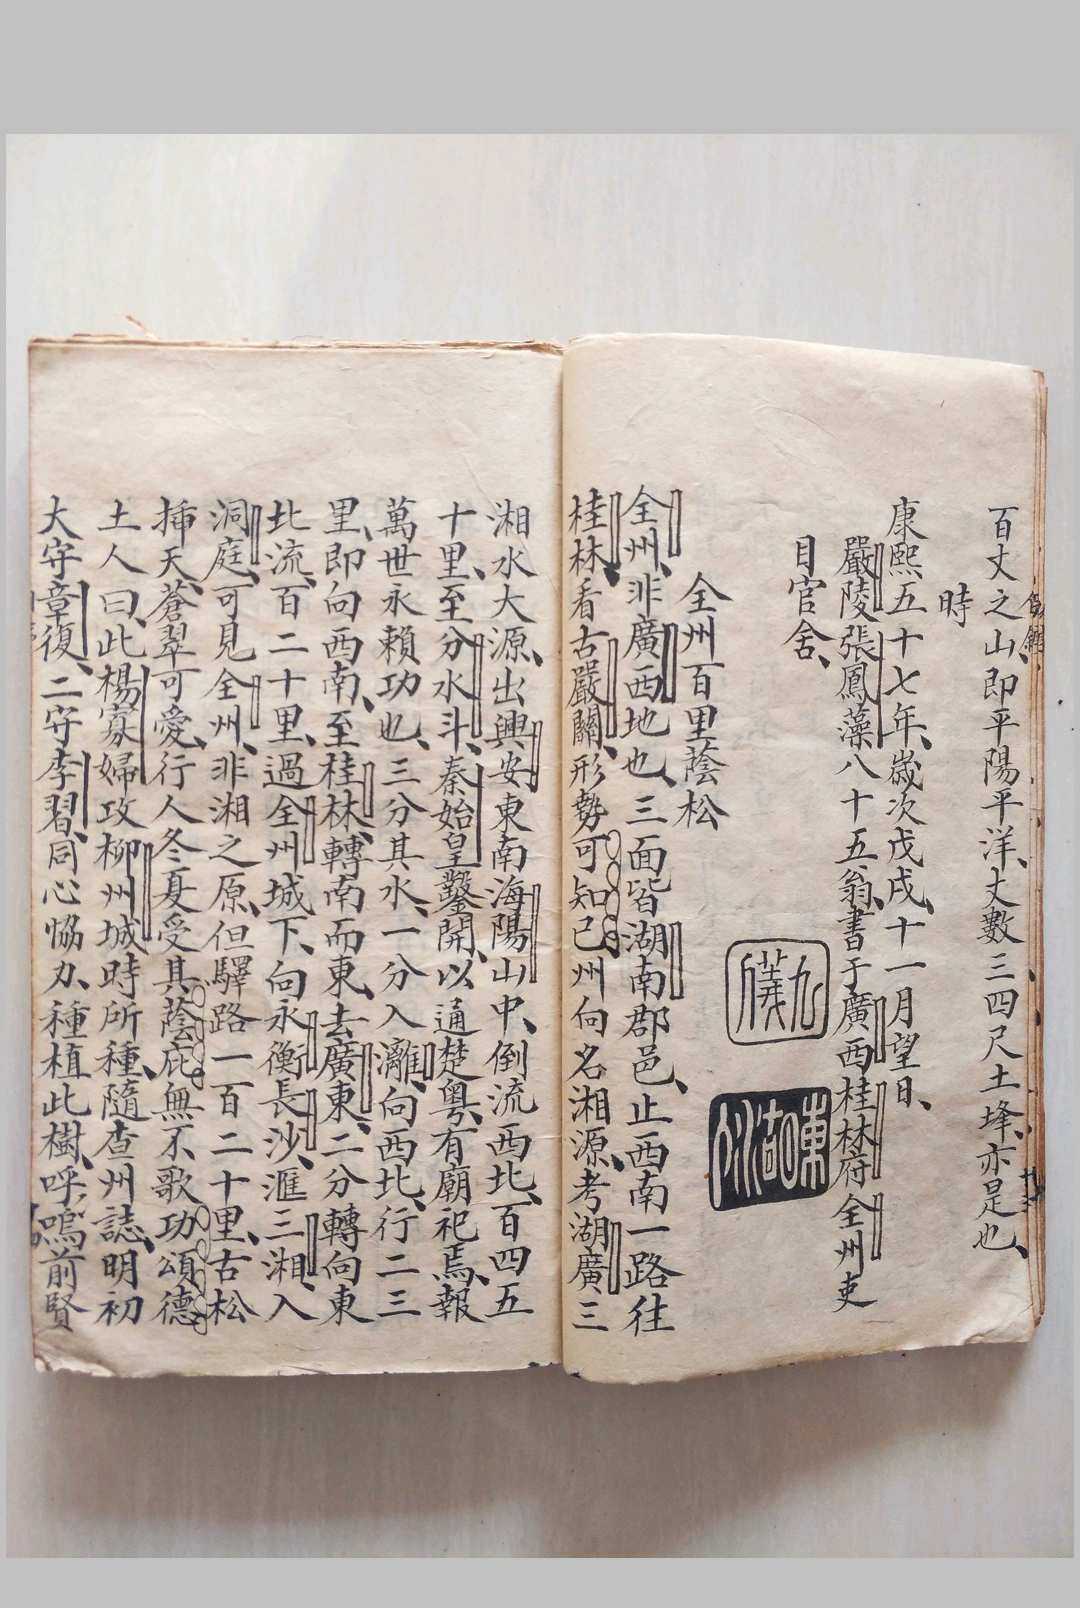 百丈之山、即平陽平洋、丈數三四尺土埄、亦是也、
時
康熙五十七年、歲次戊戌、十一月望日、
嚴陵張鳳藻八十五翁、書于廣西桂林府全州吏
目官舍、
九儀
全州百里蔭松
全州、非廣西地也、三面皆湖南郡邑、止西南一路往
桂林、看古嚴關、形勢可知已、州向名湘源、考湖廣三
湘水大源、出興安東南海陽山中、倒流西北、百四五
十里、至分水斗、秦始皇鑿開、以通楚粵、有廟祀焉、報
萬世永賴功也、三分其水、一分入灕、向西北、行二三
里、即向西南、至桂林、轉南而東、去廣東、二分轉向東
北流、百二十里、過全州城下、向永衡長沙、滙三湘、入
洞庭、可見全州、非湘之原、但驛路一百二十里、古松
揷天、蒼翠可愛、行人冬夏受其蔭庇、無不歌功頌德
土人曰、此楊寡婦攻柳州城時所種、隨查州誌、明初
大守章復、二守李習、同心恊力、種植此樹、呼嗚前賢